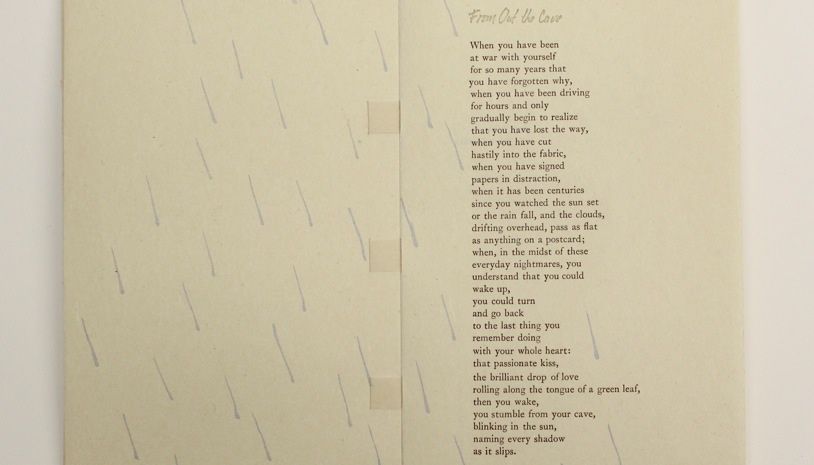 From Out the Cave
When you have been
at war with yourself
for so many years that
you have forgotten why,
when you have been driving
for hours and only
gradually begin to realize
that you have lost the way,
when you have cut
hastily into the fabric,
when you have signed
papers in distraction,
when it has been centuries
since you watched the sun set
or the rain fall, and the clouds,
drifting overhead, pass as flat
as anything on a postcard;
when, in the midst of these
everyday nightmares, you
understand that you could
wake up,
you could turn
and go back
to the last thing you
remember doing
with your whole heart:
that passionate kiss,
the brilliant drop of love
rolling along the tongue of a green leaf,
then you wake,
you stumble from your cave,
blinking in the sun,
naming every shadow
as it slips.